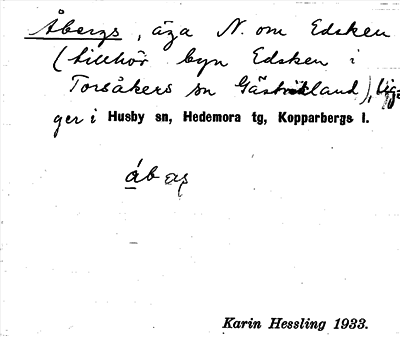 Åbergs, äga N. om Edsken
(tillhör byn Edsken i
Torsåkers sn Gästrikland), lig-
ger i Husby sn, Hedemora tg, Kopparbergs l.
Karin Hessling 1933.